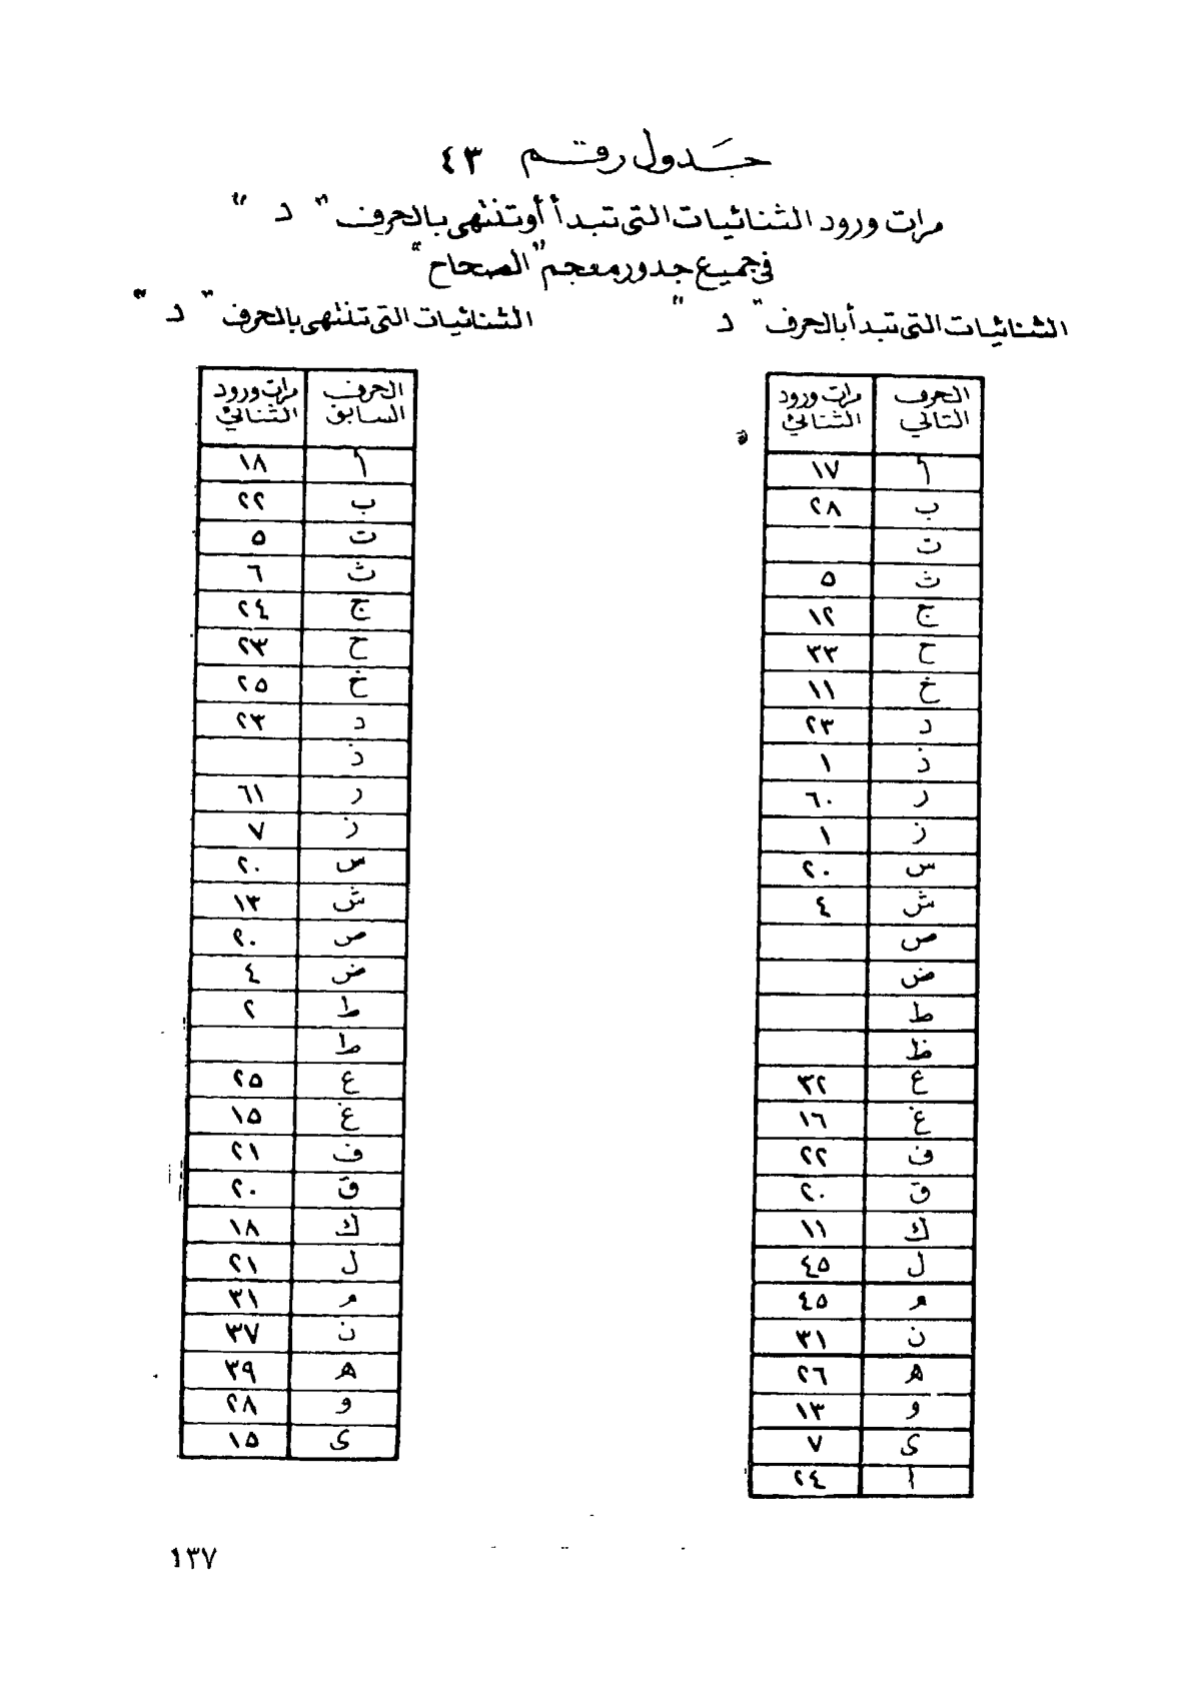 جَدول رقم ٤٣
مرات ورود الثنائيات التى تبدأ أو تنتهى بالحرف " د "
فى جميع جدور معجم "الصحاح"
الثنائيات التى تبدأ بالحرف " د "
الحرف التالي | مرات ورود الثنائي
أ | ١٧
ب | ٢٨
ت |
ث | ٥
ج | ١٢
ح | ٣٣
خ | ١١
د | ٢٣
ذ | ١
ر | ٦٠
ز | ١
س | ٢٠
ش | ٤
ص |
ض |
ط |
ظ |
ع | ٣٢
غ | ١٦
ف | ٢٢
ق | ٢٠
ك | ١١
ل | ٤٥
م | ٤٥
ن | ٣١
ه | ٢٦
و | ١٣
ى | ٧
ا | ٢٤
الثنائيات التى تنتهى بالحرف " د "
الحرف السابق | مرات ورود الثنائي
أ | ١٨
ب | ٢٢
ت | ٥
ث | ٦
ج | ٢٤
ح | ٢٣
خ | ٢٥
د | ٢٣
ذ |
ر | ٦١
ز | ٧
س | ٢٠
ش | ١٣
ص | ٢٠
ض | ٤
ط | ٢
ط |
ع | ٢٥
غ | ١٥
ف | ٢١
ق | ٢٠
ك | ١٨
ل | ٢١
م | ٣١
ن | ٣٧
ه | ٣٩
و | ٢٨
ى | ١٥
١٣٧